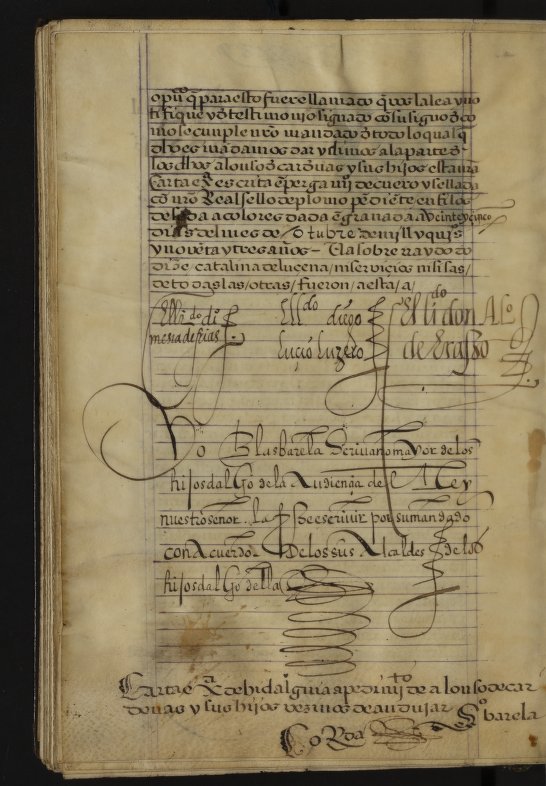 opu^co q̃ para esto fuere llamado q̃ vos la lea y no
tifique y de testimonio signado cō su signo de co
mo se cumple nr̃o mandado de todo lo qual q̃
dho es mãdamos dar y dimos a la parte de
los dhos alonso de cardenas y sus hijos esta nr̃a
carta e^a escrita ẽ pergamj̃ de cuero y sellada
cō nr̃o Real sello de plomo pẽdiẽte en filos
de seda a colores dada ẽ granada a veinte y cinco
dias del mes de otubre de mill y quis
y noventa y tres años – Va sobre rraydo do
dize / catalina de lucena / n servicios ni sisas /
de todas las / otras / fueron / aesta / a /
El l^do di mesia de frias
El l^do diego lucio luzero
El li^do don Al^o de Erasso
Yo Blas barela Scriuano mayor de los
hijosdalgo de la Audiençia del Rey
nuestro señor. la fize escriuir por su mandado
con Acuerdo. De los sus Alcaldes de los
hijosdalgo della
Carta e^a de hidalguia a pedimj^to de alonso de car
denas y sus hijos vezinos de andujar S^o barela